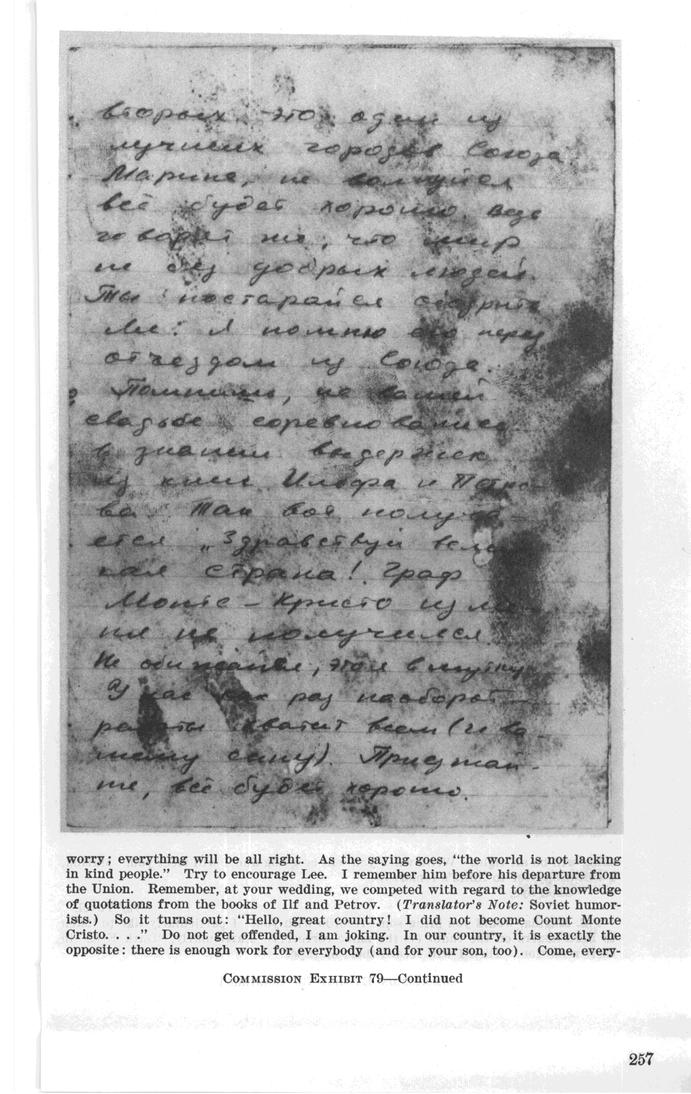 вторых это один из
лучших городов Союза.
Марина, не волнуйся
всё будет хорошо. Ведь
говорят же, что мир
не без добрых людей.
Ты постарайся ободрить
Ли. Я помню его перед
отъездом из Союза.
Помнишь, на вашей
свадьбе соревновались
в знании выдержек
из книг Ильфа и Петро-
ва. Так вот получа-
ется „Здравствуй вели-
кая страна! Граф
Монте-Кристо из ме-
ня не получился.
Не обижайся, это я в шутку.
У нас как раз наоборот
работы хватит всем (и ва-
шему сыну). Приезжай-
те, всё будет хорошо.
worry; everything will be all right. As the saying goes, "the world is not lacking
in kind people." Try to encourage Lee. I remember him before his departure from
the Union. Remember, at your wedding, we competed with regard to the knowledge
of quotations from the books of Ilf and Petrov. (Translator's Note: Soviet humor-
ists.) So it turns out: "Hello, great country! I did not become Count Monte
Cristo. . . ." Do not get offended, I am joking. In our country, it is exactly the
opposite: there is enough work for everybody (and for your son, too). Come, every-
COMMISSION EXHIBIT 79—Continued
257